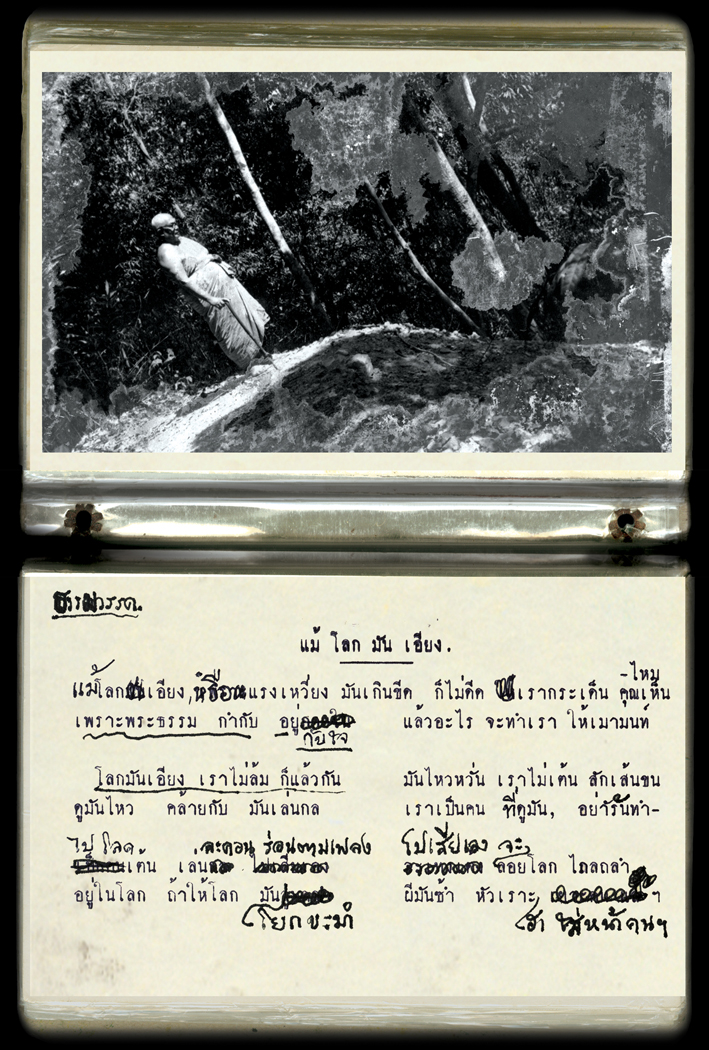 ธรรมวรรค.
แม้ โลก มัน เอียง.
แม้โลกเอียง, แรงเหวี่ยง มันเกินขีด ก็ไม่ดีด เรากระเด็น คุณเห็น
-ไหม
เพราะพระธรรม กำกับ อยู่ แล้วอะไร จะทำเรา ให้เมามนท์
กับใจ
โลกมันเอียง เราไม่ล้ม ก็แล้วกัน มันไหวหวั่น เราไม่เต้น สักเส้นขน
ดูมันไหว คล้ายกับ มันเล่นกล เราเป็นคน ที่ดูมัน, อย่ารันทำ-
ละคอน ร่อนตามเพลง จะ
เต้น เล่น ลอยโลก ไถลถลำ
อยู่ในโลก ถ้าให้โลก มัน ผีมันซ้ำ หัวเราะ ฯ
โยกขะมำ ฮ่า ใส่หน้าคนฯ